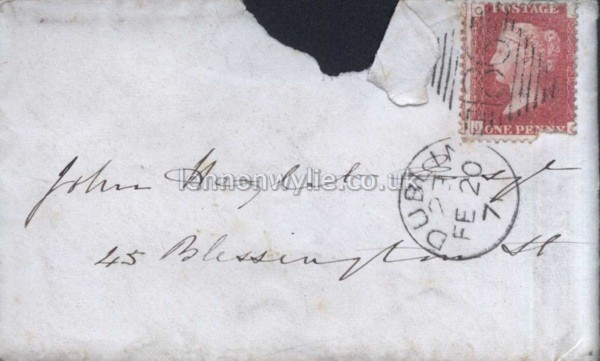 POSTAGE
ONE PENNY
DUBLIN
FE 20
7
lennonwylie.co.uk
John
45 Blessington St